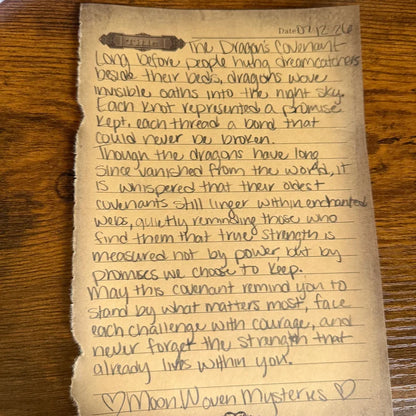 Date 07-12-26
The Dragon's Covenant
Long before people hung dreamcatchers
beside their beds, dragons wove
invisible oaths into the night sky.
Each knot represented a promise
kept, each thread a bond that
could never be broken.
Though the dragons have long
since vanished from the world, it
is whispered that their oldest
covenants still linger within enchanted
webs, quietly reminding those who
find them that true strength is
measured not by power, but by
promises we choose to keep.
May this covenant remind you to
stand by what matters most, face
each challenge with courage, and
never forget the strength that
already lives within you.
♡Moon Woven Mysteries♡